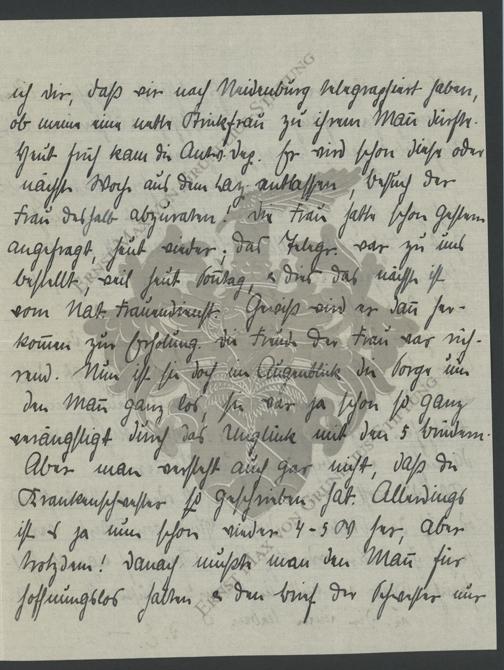 ich dir, daß wir nach Neidenburg telegraphiert haben,
ob meine eine nette Frau zu ihrem Mañ dürfte.
Heut früh kam die Antw. dep. Er wird schon diese oder
nächste Woche aus dem Laz. entlassen, Besuch der
Frau deshalb abzuraten. Die Frau hatte schon gestern
angefragt, heut wieder; das Telegr. war zu uns
bestellt, weil heut Sonntag, u dies das nächste ist
vom Nat. Frauendienst. Gewiß wird er dañ her-
kom̄en zur Erholung. Die Freude der Frau war rüh-
rend. Nun ist sie doch im Augenblick die Sorge um
den Mañ ganz los, sie war ja schon so ganz
verängstigt durch das Unglück mit den 5 Brüdern.
Aber man versteht auch gar nicht, daß die
Krankenschwester so geschrieben hat. Allerdings
ist es ja nun schon wieder 4-5 W her, aber
trotzdem! Danach mußte man den Mañ für
hoffnungslos halten u den Brief der Schwester nur
ERNST MAX VON GRUNELIUS-STIFTUNG
ERNST MAX VON GRUNELIUS-STIFTUNG